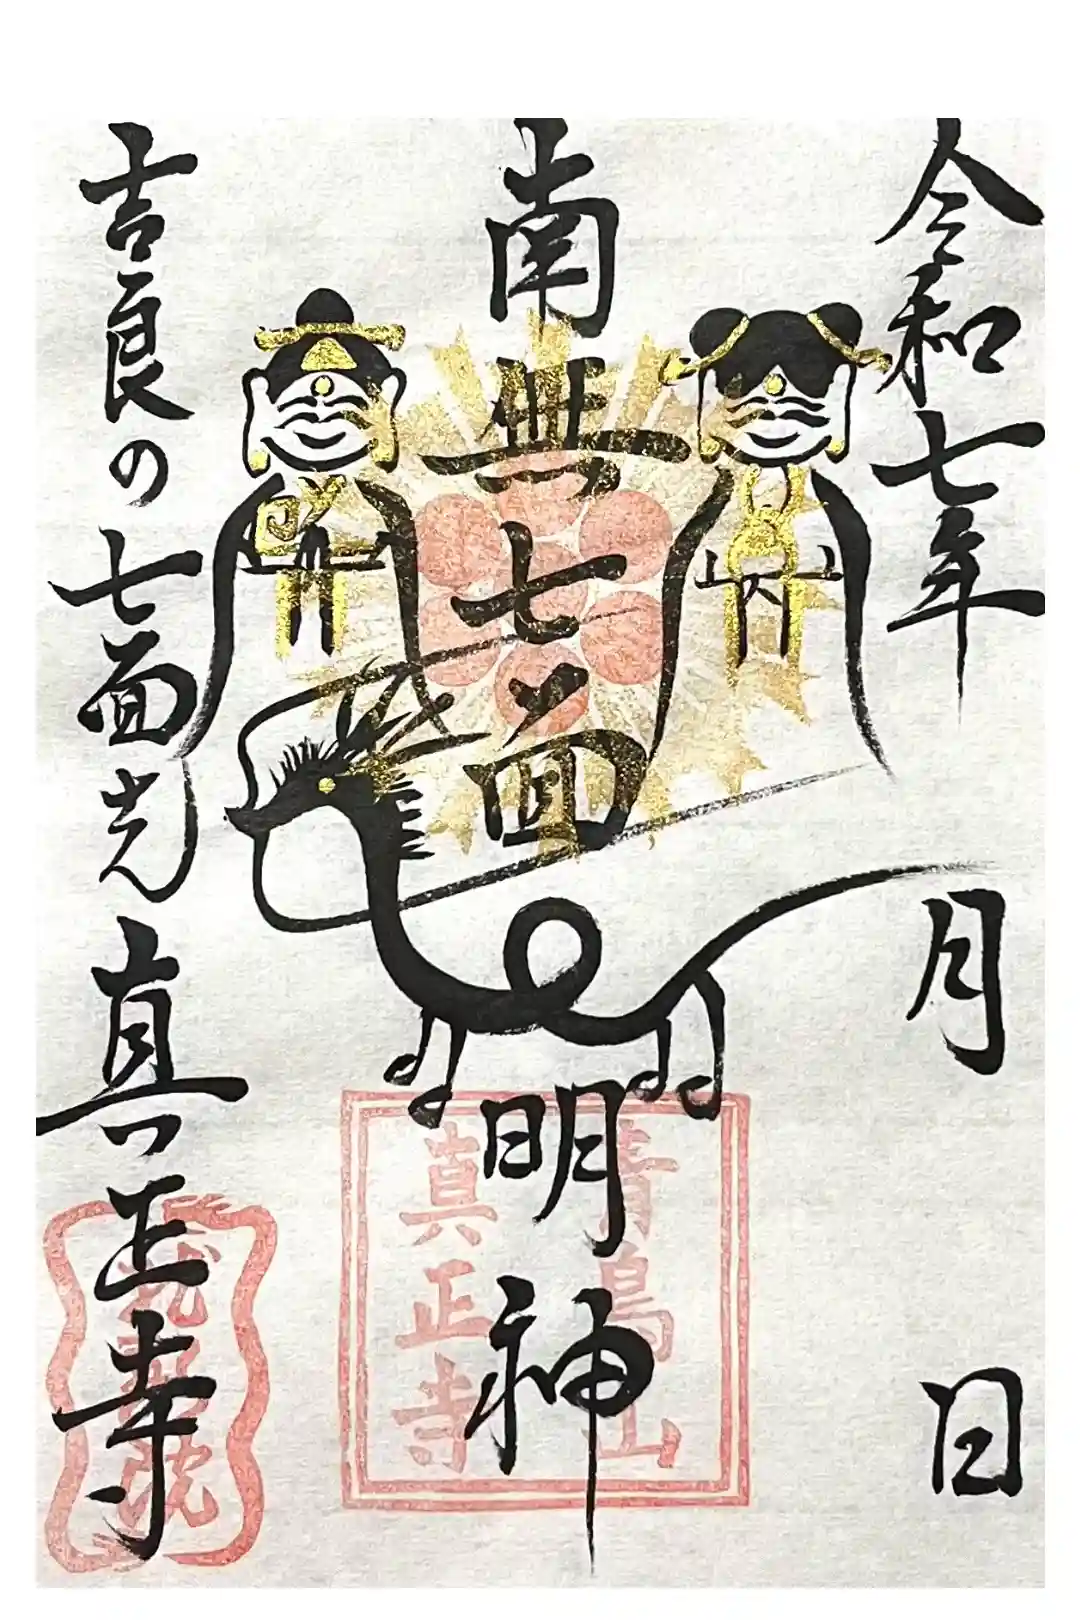 令和七年 月 日
南無七面
大明神
吉良の七面光 真正寺
青鳥山
真正寺